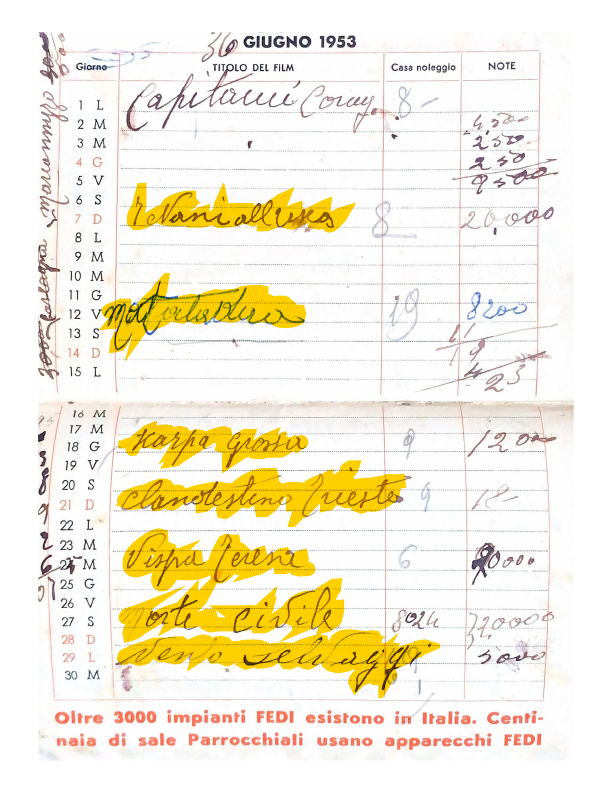 GIUGNO 1953
Giorno TITOLO DEL FILM Casa noleggio NOTE
1 L Capitani Corag. 8-
2 M 4,500
3 M 250
4 G 250
5 V 9500
6 S
7 D I Nani alla 8 20,000
8 L
9 M
10 M
11 G
12 V 19 8200
13 S 11
14 D 19
15 L 4
23
16 M
17 M
18 G scarpa grossa 9 12000
19 V
20 S
21 D clandestino trieste 9 18-
22 L
23 M
24 M Vispa Teresa 6 0000
25 G
26 V
27 S Morte civile 20000
28 D
29 L Vento selvaggi 5000
30 M 1
Oltre 3000 impianti FEDI esistono in Italia. Centi-
naia di sale Parrocchiali usano apparecchi FEDI